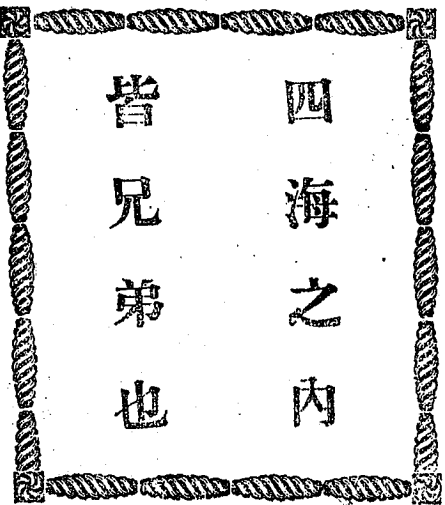 四海之內
皆兄弟也